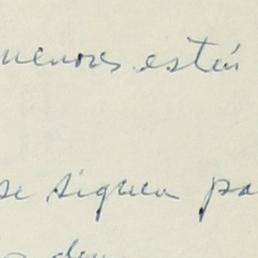 menores están
se siguen pa